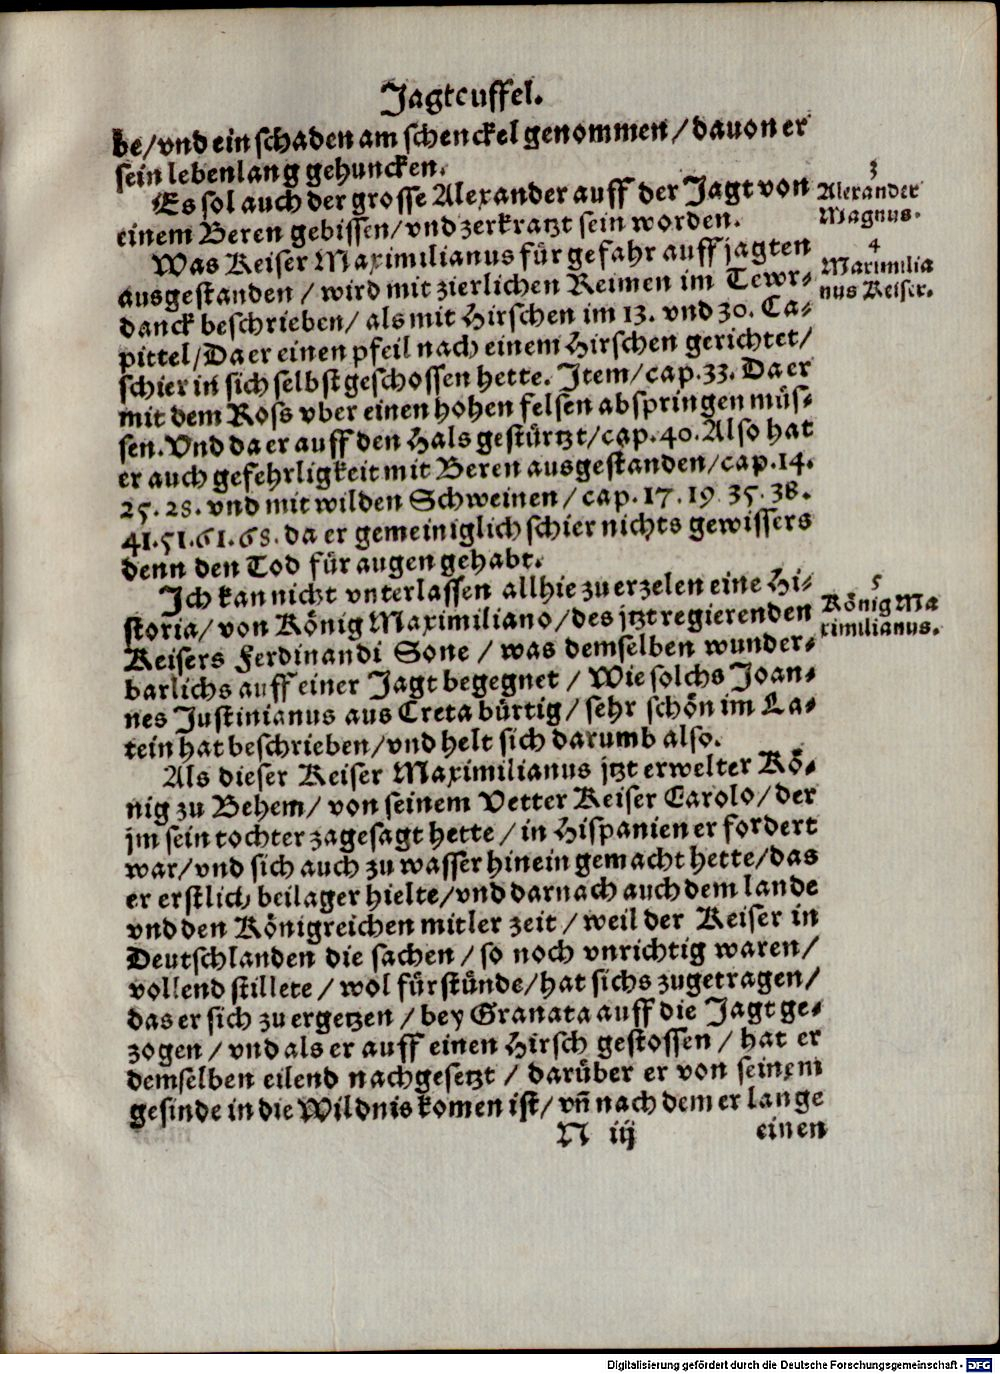 Jagteuffel.
be/vnd ein schaden am schenckel genommen/dauon er
sein lebenlang gehuncken.
Es sol auch der grosse Alexander auff der Jagt von
einem Beren gebissen/vnd zerkratzt sein worden.
3
Alexander
Magnus.
Was Keiser Maximilianus für gefahr auff jagten
ausgestanden/wird mit zierlichen Reimen im Tewr-
danck beschrieben/als mit Hirschen im 13. vnd 30. Ca-
pittel/Da er einen pfeil nach einem Hirschen gerichtet/
schier in sich selbst geschossen hette. Item/cap.33. Da er
mit dem Ross vber einen hohen felsen abspringen müs-
sen. Vnd da er auff den Hals gestürtzt/cap.40. Also hat
er auch gefehrligkeit mit Beren ausgestanden/cap.14.
25.28. vnd mit wilden Schweinen/cap.17.19 35.38.
41.51.61.68. da er gemeiniglich schier nichts gewissers
denn den Tod für augen gehabt.
4
Maximilia
nus Keiser.
Ich kan nicht vnterlassen allhie zu erzelen eine Hi-
storia/von König Maximiliano/des jtzt regierenden
Keisers Ferdinandi Sone/was demselben wunder-
barlichs auff einer Jagt begegnet/Wie solchs Joan-
nes Justinianus aus Creta bürtig/sehr schön im La-
tein hat beschrieben/vnd helt sich darumb also.
5
König Ma
ximilianus.
Als dieser Keiser Maximilianus jtzt erwelter Kö-
nig zu Behem/von seinem Vetter Keiser Carolo/der
jm sein tochter zagesagt hette/in Hispanien erfordert
war/vnd sich auch zu wasser hinein gemacht hette/das
er erstlich beilager hielte/vnd darnach auch dem lande
vnd den Königreichen mitler zeit/weil der Keiser in
Deutschlanden die sachen/so noch vnrichtig waren/
vollend stillete/wol fürstünde/hat sichs zugetragen/
das er sich zu ergetzen/bey Granata auff die Jagt ge-
zogen/vnd als er auff einen Hirsch gestossen/hat er
demselben eilend nachgesetzt/darüber er von seinem
gesinde in die Wildnis komen ist/vn̄ nach dem er lange
N iij
einen
Digitalisierung gefördert durch die Deutsche Forschungsgemeinschaft - DFG